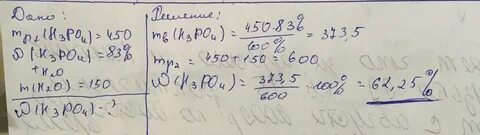 Дано:
mр1(H3PO4)=450
ω(H3PO4)=83%
+H2O
m(H2O)=150
ω(H3PO4)-?
Решение:
mв(H3PO4)=450·83%/100%=373,5
mр2=450+150=600
ω(H3PO4)=373,5/600·100%=62,25%